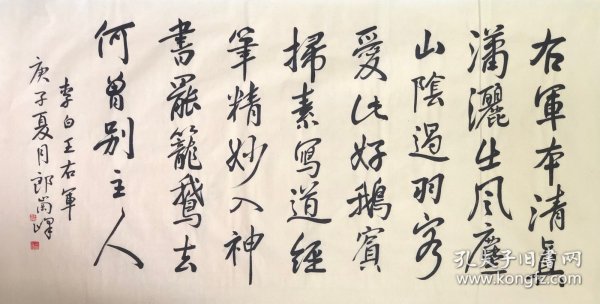 右軍本清真
瀟灑出風塵
山陰過羽客
愛此好鵝賓
掃素寫道經
筆精妙入神
書罷籠鵝去
何曾別主人
李白王右軍
庚子夏月郎尚峰
孔夫子旧书网